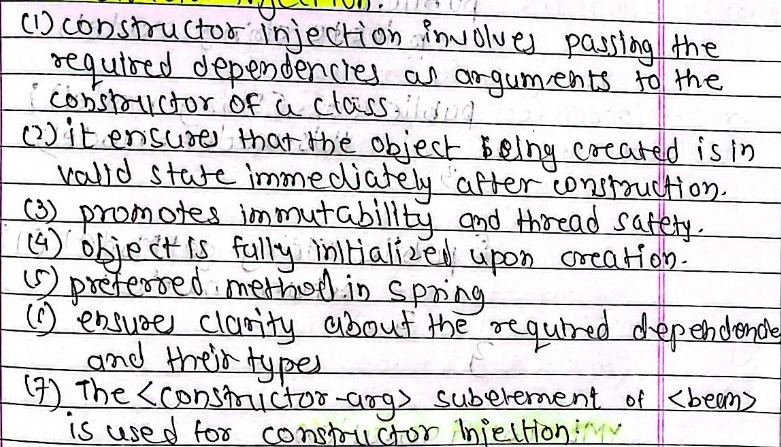 (1) constructor injection involves passing the
required dependencies as arguments to the
constructor of a class
(2) it ensures that the object being created is in
valid state immediately after construction.
(3) promotes immutability and thread safety.
(4) object is fully initialized upon creation.
(5) preferred method in spring
(6) ensures clarity about the required dependencie
and their types
(7) The <constructor-arg> subelement of <bean>
is used for constructor injection.